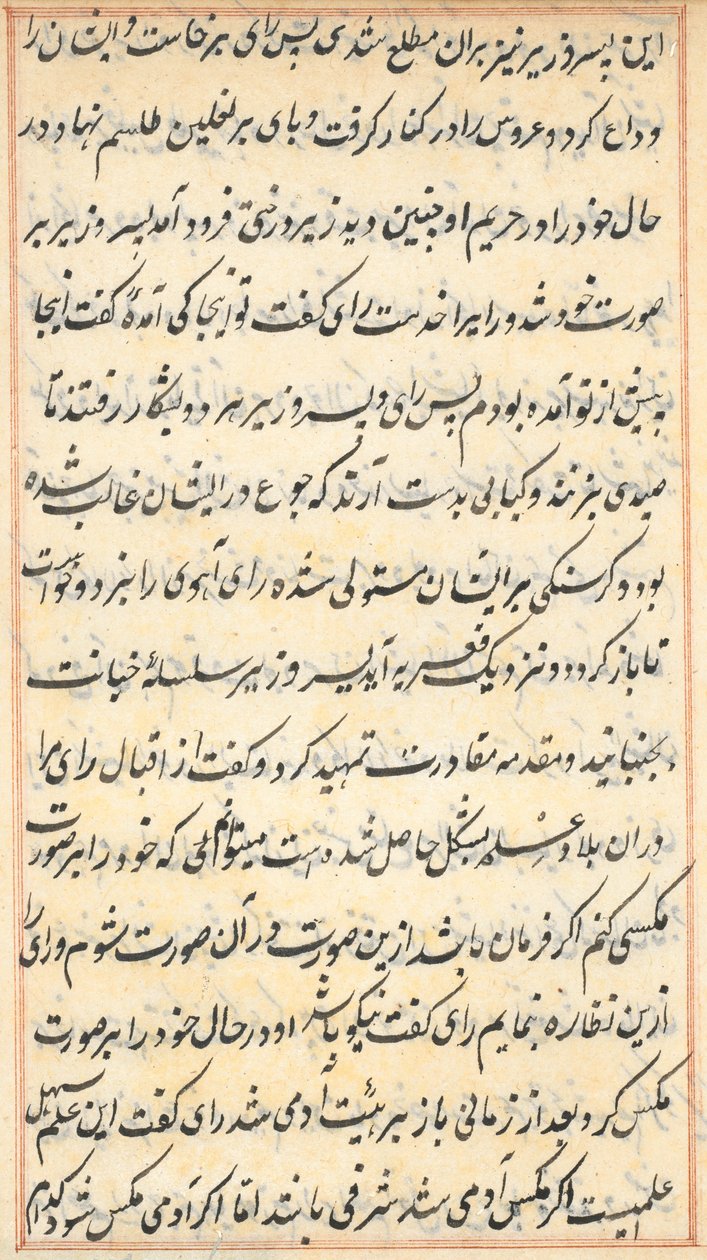 این پسر وزیر نیز بران مطلع شدی پس رای برخاست و ایشان را
وداع کرد و عروس را در کنار گرفت و پای بر نعلین طلسم نهاد در
حال خود را در حریم او چنین دید زیر درختی فرود آمد پسر وزیر بر
صورت خود شد و رای را خدمت رای گفت تو اینجا کی آمدهٔ گفت اینجا
پیش از تو آمده بودم پس رای و پسر وزیر هر دو بشکار رفتند تا
صیدی بزنند و کبابی بدست آرند که جوع در ایشان غالب شده
بود و گرسنکی بر ایشان مستولی شده رای آهوی را بزد و خواست
تا باز کردد و نزدیک قعریه آید پسر وزیر سلسلهٔ خیانت
بجنبانید و مقدمه مقادرت تمهید کرد و گفت از اقبال رای مرا
دران بلاد علم بشکل حاصل شده است میتوانم که خود را بر صورت
مکسی کنم اکر فرمان باشد ازین صورت در آن صورت شوم و رای را
ازین نظاره بنمایم رای گفت نیکو باشد او در حال خود را بر صورت
مکس کرد و بعد از زمانی باز بر هیئت آدمی شد رای گفت این علم سهل
علمیست اکر مکس آدمی شد شرفی باشد اما اکر آدمی مکس شود کدام